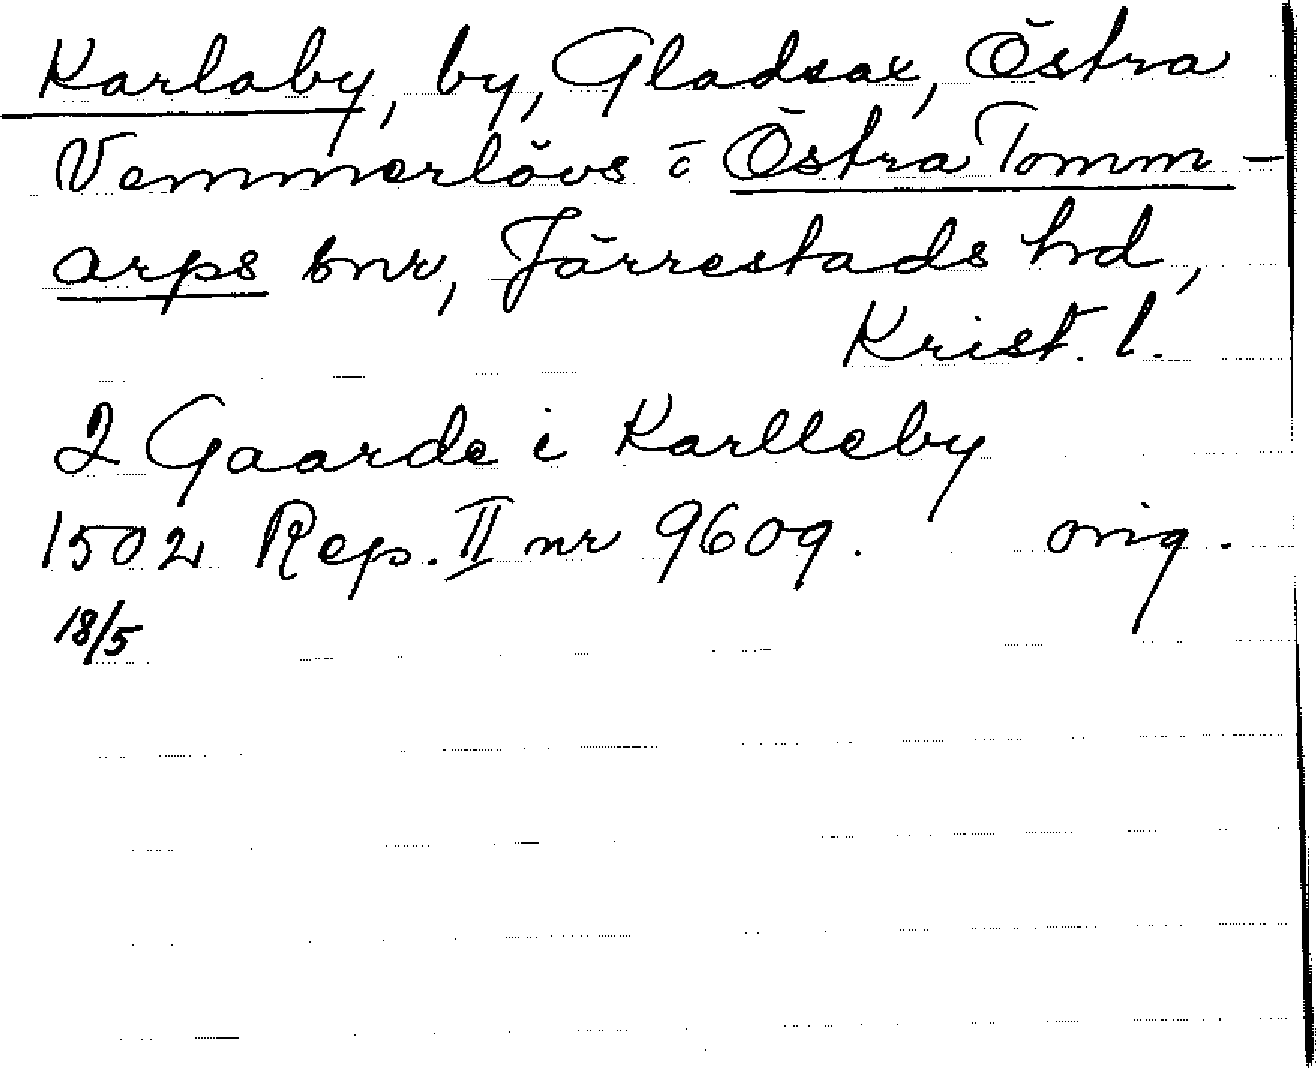 Karlaby, by, Gladsax, Östra
Vemmerlövs o Östra Tomm-
arps snr, Järrestads hd,
Krist. l.
2 Gaarde i Karlleby
1502 Rep. II nr 9609. orig.
18/5